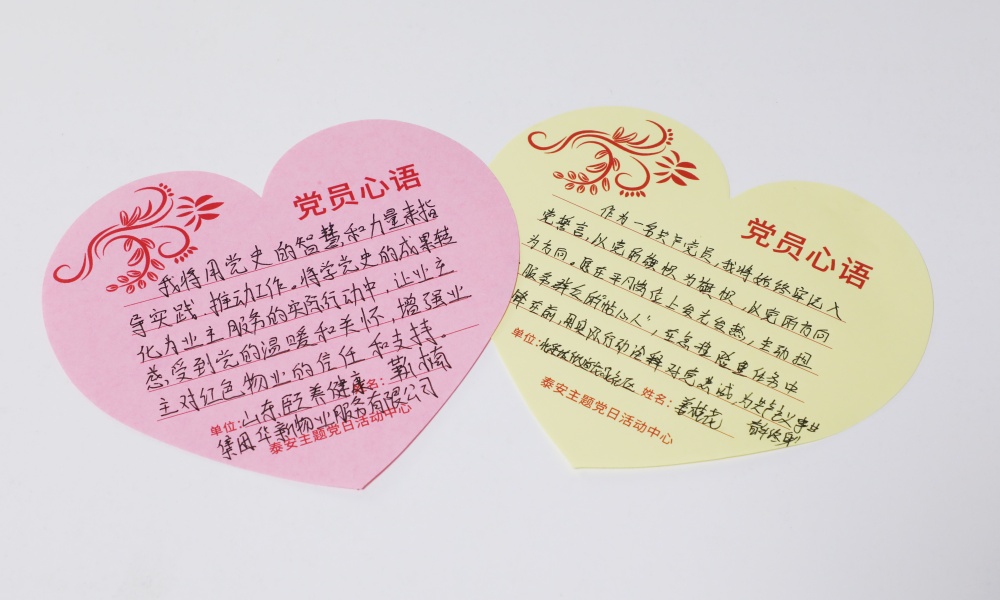 党员心语
我将用党史的智慧和力量来指
导实践,推动工作,将学党史的成果转
化为业主服务的实际行动中,让业主
感受到党的温暖和关怀,增强业
主对红色物业的信任和支持.
姓名: 靳楠
单位: 山东颐养健康
集团华新物业服务有限公司
泰安主题党日活动中心
党员心语
作为一名共产党员,我将始终牢记入
党誓言,以党的旗帜为旗帜,以党的方向
为方向,愿在平凡岗位上发光发热,主动担
服务群众的“贴心人”,在急难险重任务中
在前,用实际行动诠释对党忠诚,为共产主义事业
奋斗终身!
单位:
姓名: 姜桂花
泰安主题党日活动中心